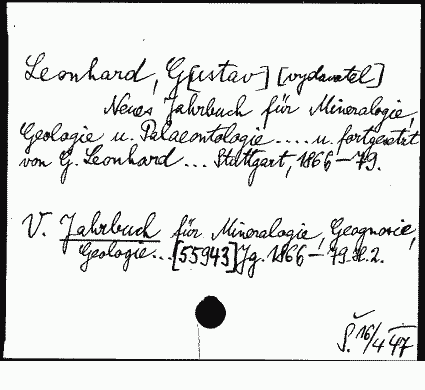 Leonhard, G[ustav] [vydavatel]
Neues Jahrbuch für Mineralogie,
Geologie u. Palaeontologie .... u. fortgesetzt
von G. Leonhard ... Stuttgart, 1866–79.
V. Jahrbuch für Mineralogie, Geognosie,
Geologie... [55943] Jg. 1866–79. 
Š. 16/4 47